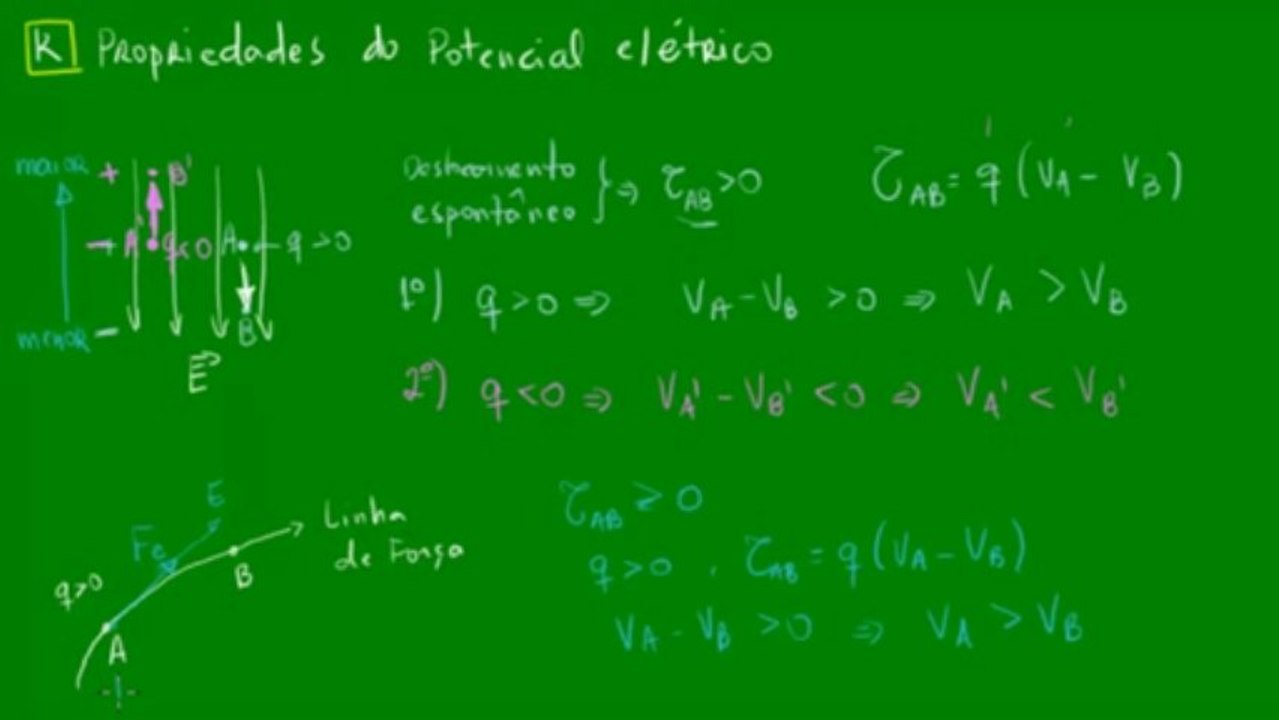 K Propriedades do Potencial elétrico
maior + B'
- A' q<0 A q>0
menor - B
E
espontâneo } ⇒ τAB>0
τAB = q (VA - VB)
1º) q>0 ⇒ VA - VB >0 ⇒ VA > VB
2º) q<0 ⇒ VA' - VB' <0 ⇒ VA' < VB'
E
Fe
q>0
A
B
Linha
de Força
τAB > 0
q>0 , τAB = q (VA - VB)
VA - VB >0 ⇒ VA > VB